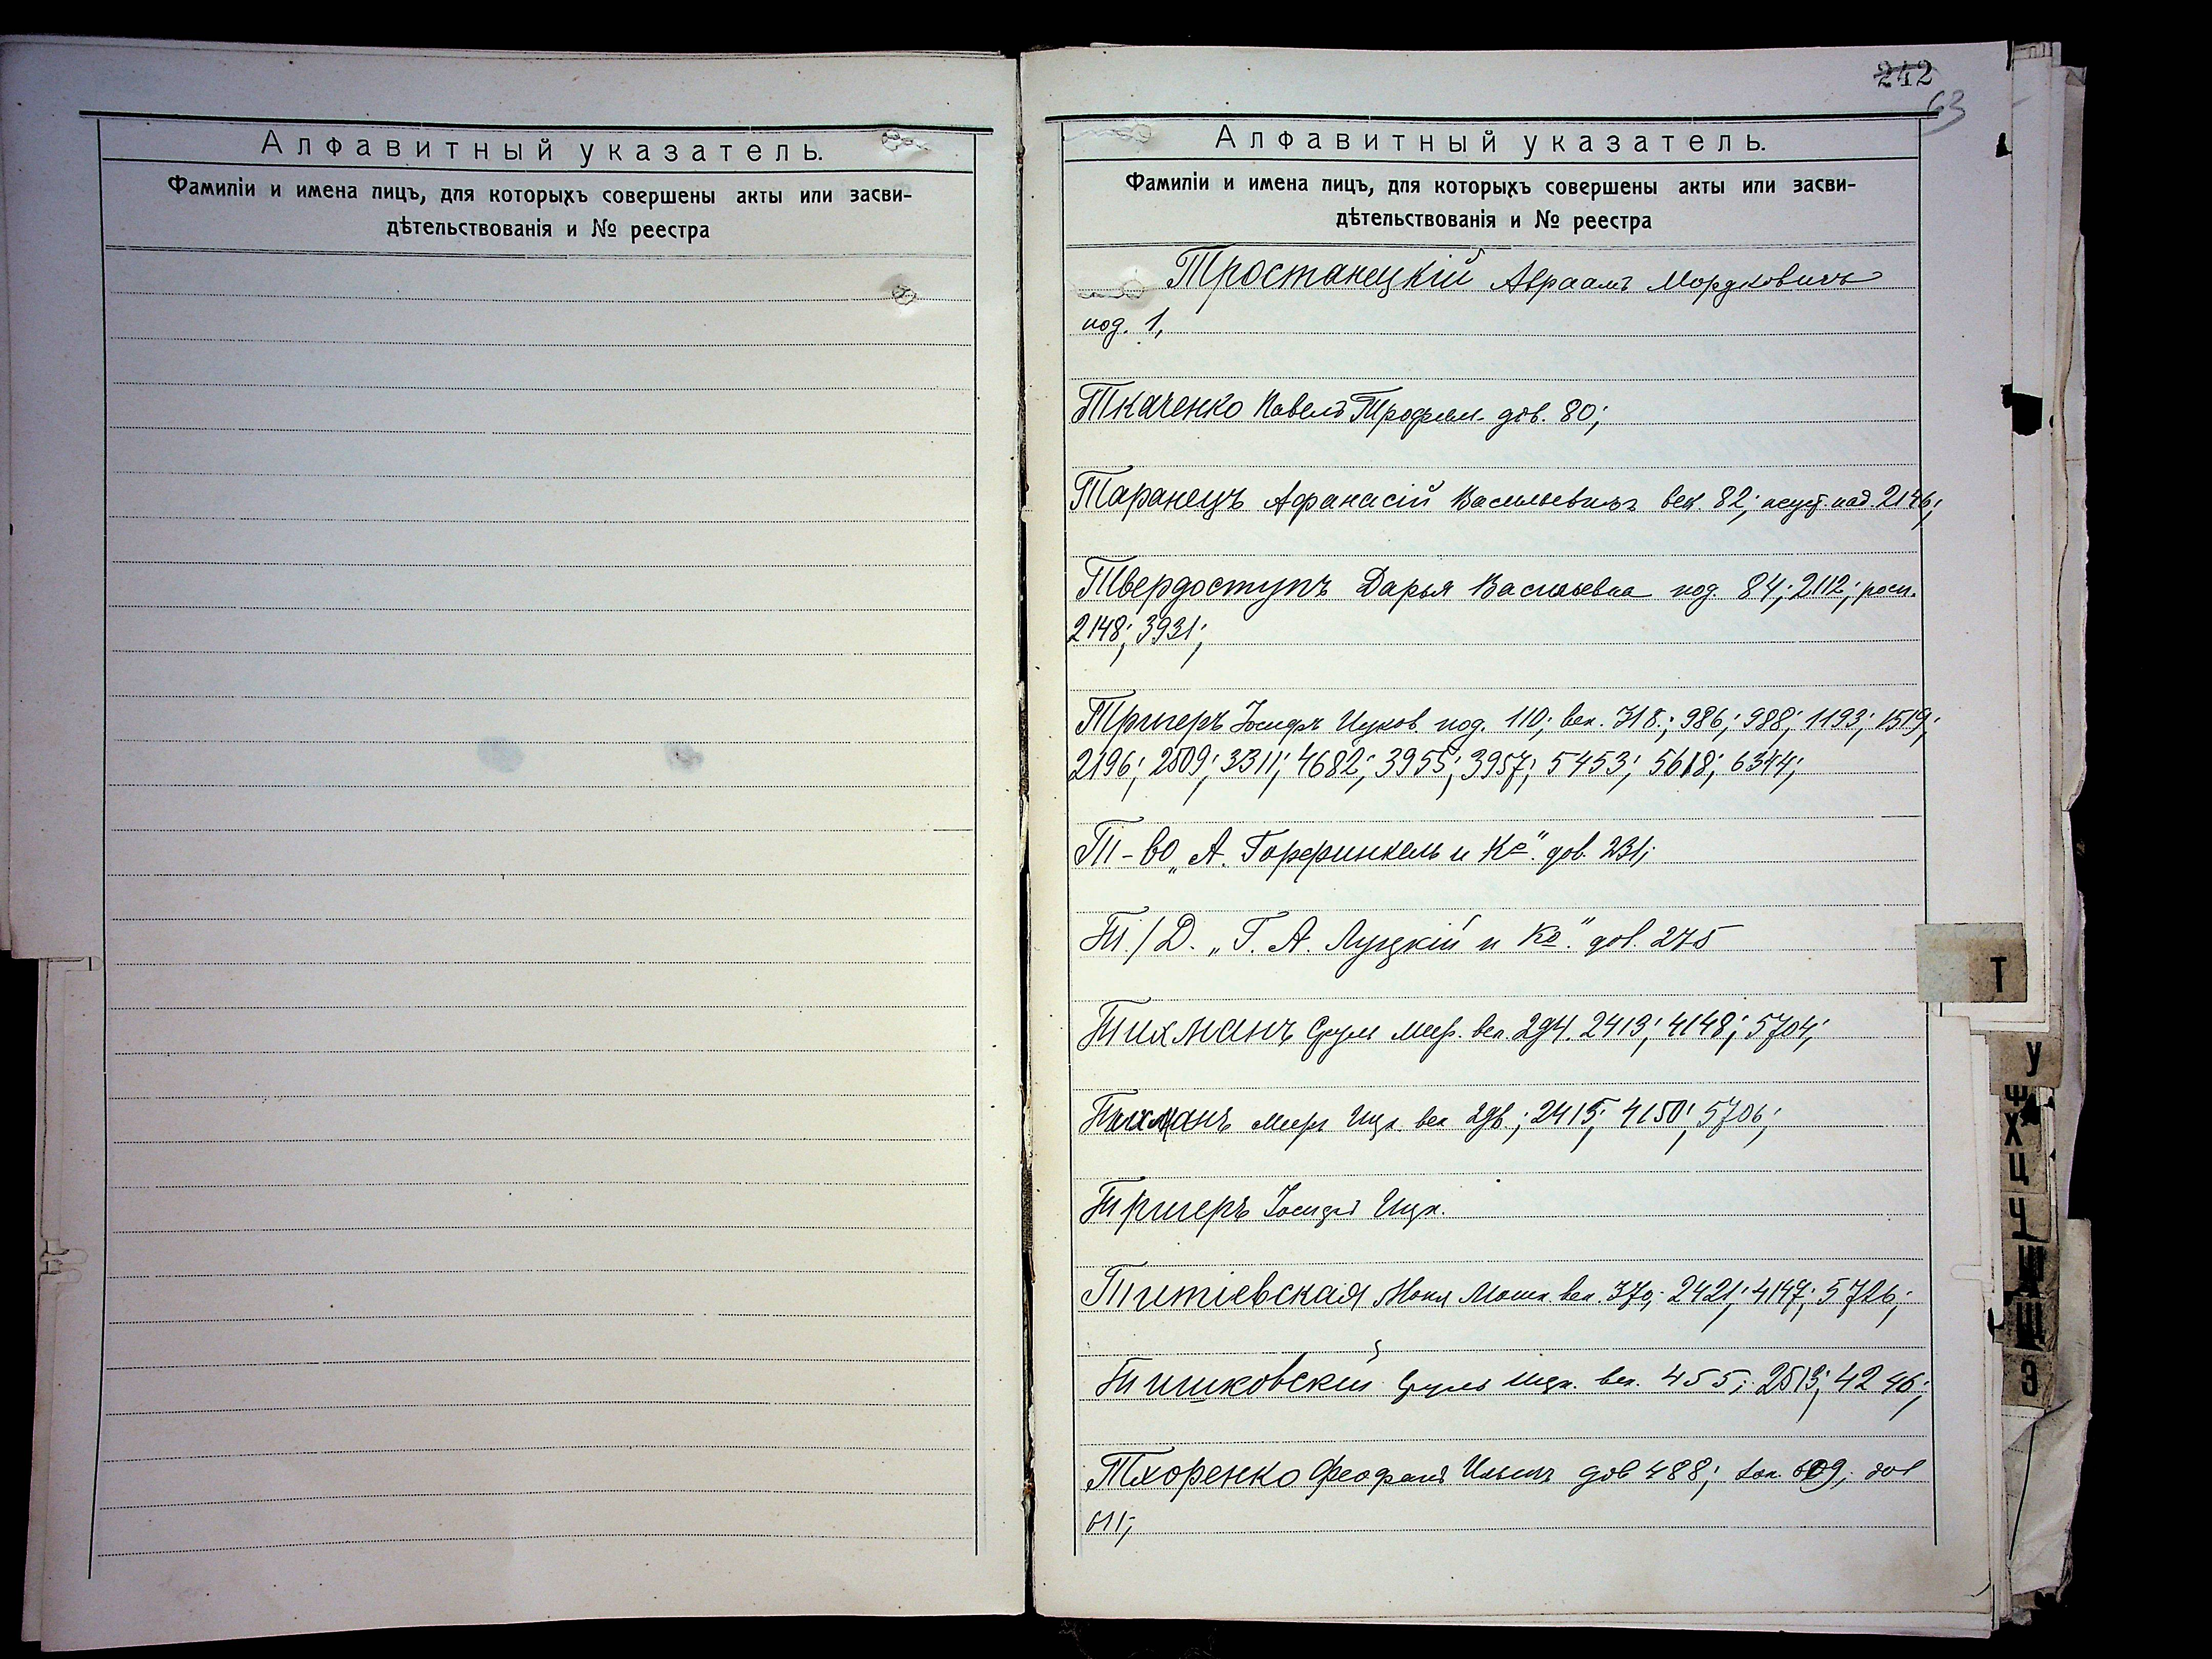 Алфавитный указатель.
Фамиліи и имена лицъ, для которыхъ совершены акты или засви-
дѣтельствованія и № реестра
242
63
Алфавитный указатель.
Фамиліи и имена лицъ, для которыхъ совершены акты или засви-
дѣтельствованія и № реестра
Тростанецкій Авраамъ Мордковичъ
под. 1,
Ткаченко Павелъ Трофим. дов. 80;
Таранецъ Афанасій Васильевичъ век. 82; над. 2146;
Твердоступъ Дарья Васильевна под. 84; 2112; росп.
2148; 3931;
Тригеръ Іосифъ Ицков. под. 110; век. 318.; 986; 988; 1193; 1519;
2196; 2509; 3311; 4682; 3955; 3957; 5453; 5618; 6344;
Т-во „А. Горфинкель и Ко". дов. 231;
Т./Д. „Г. А. Луцкій и Ко". дов. 275
Тихманъ Сруль Меер. век. 294. 2413; 4148; 5704;
Тихманъ Меер Ицк. век ; 2415; 4150; 5706;
Тригеръ Іосифъ Ицк.
Титіевская Мошк. век. 370; 2421; 4147; 5726;
Тишковскій Сруль Ицк. век. 455; 2513; 4246;
Тхоренко Феофанъ Ильичъ дов 488; 609; дов
611;
Т
У
Ф
Х
Ц
Ч
Ш
Щ
Э